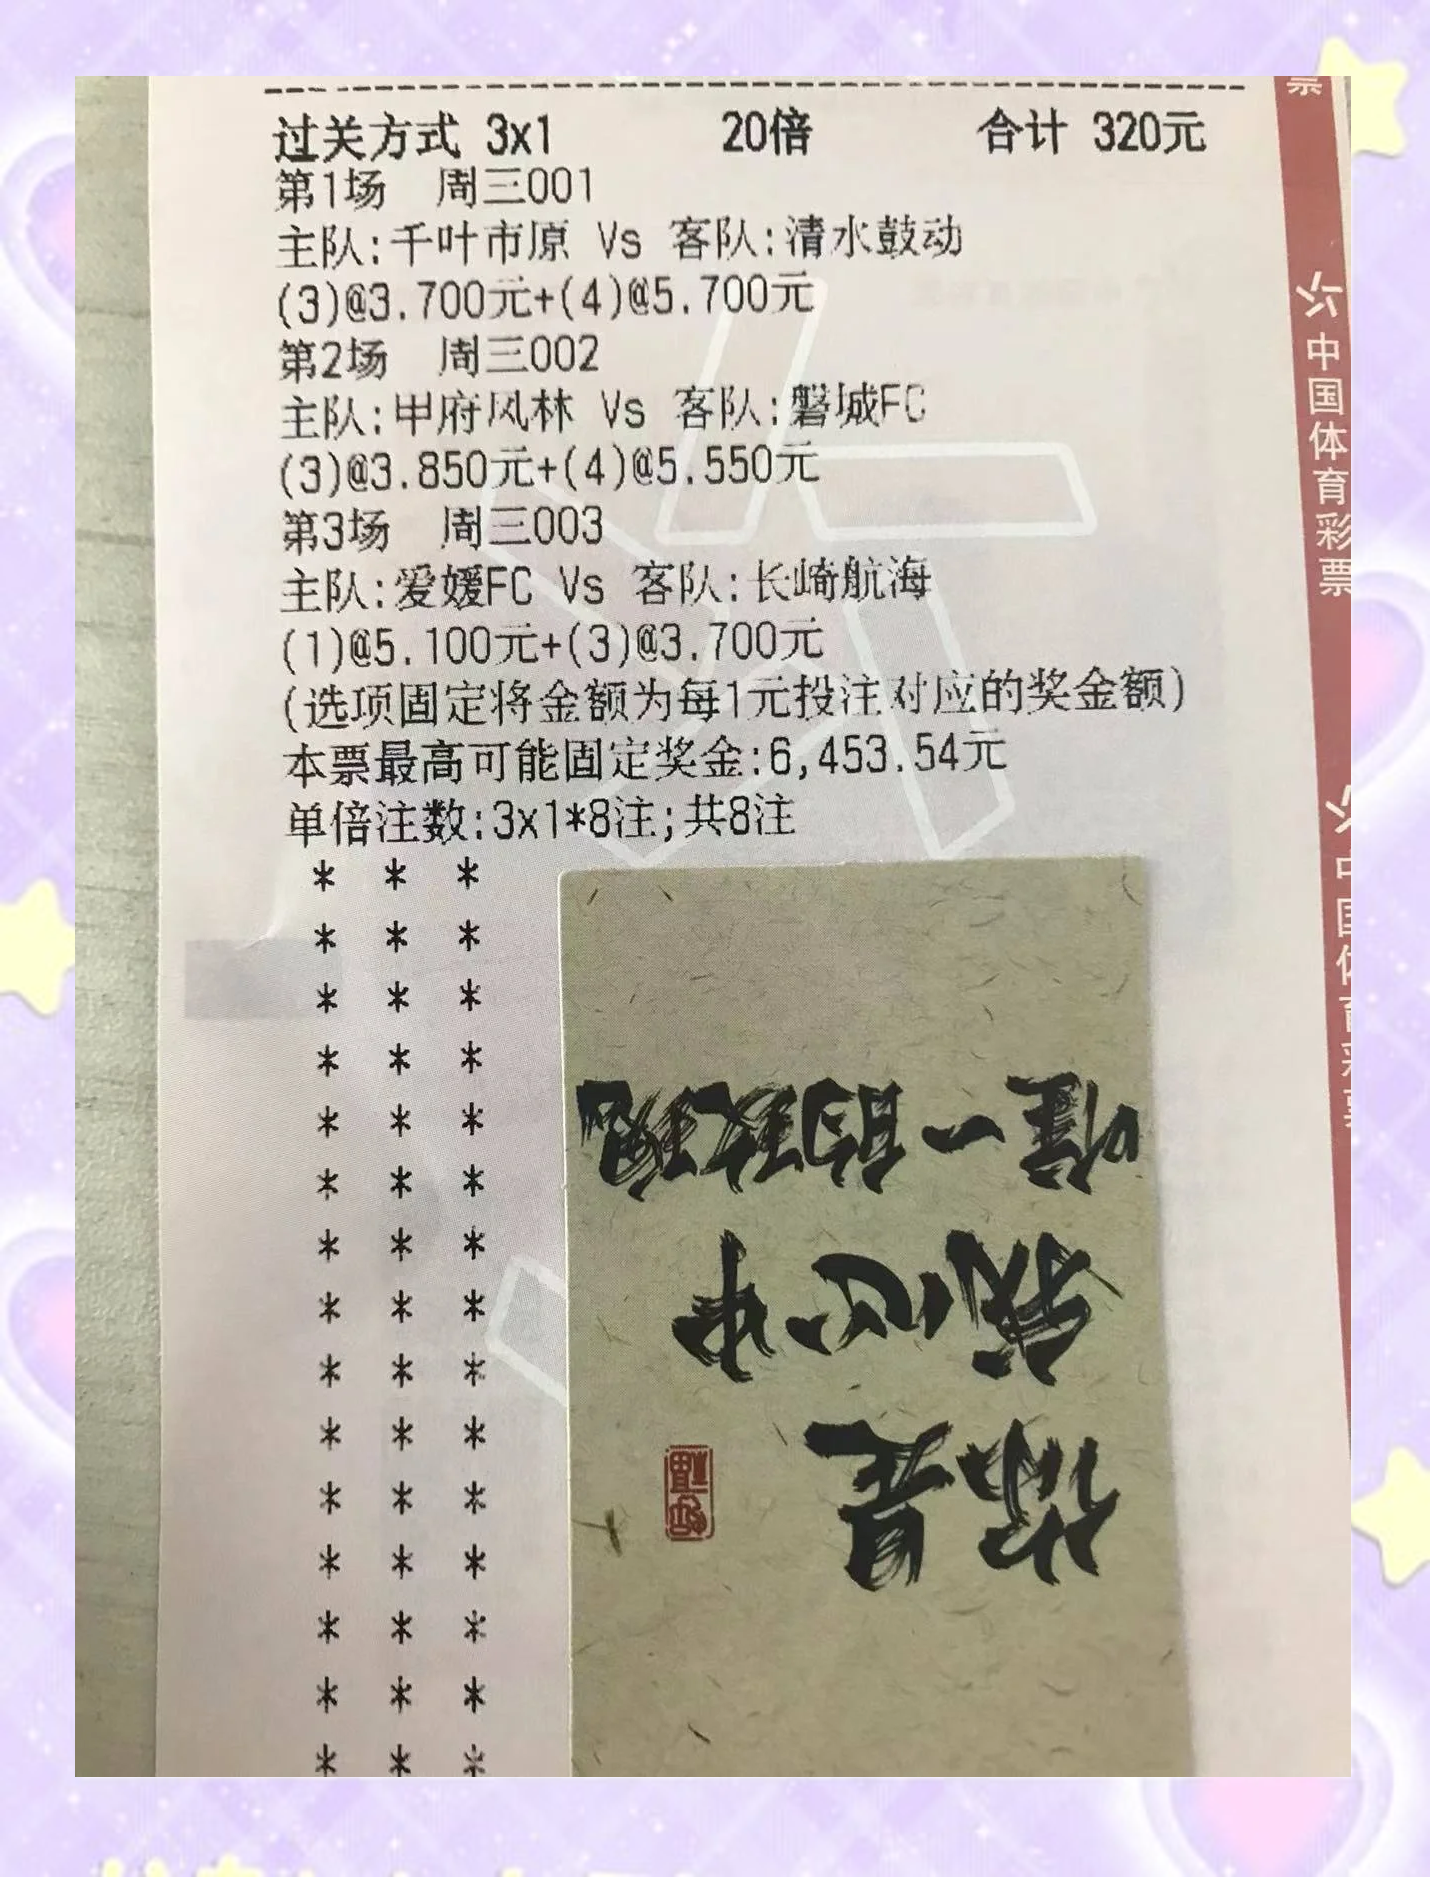 过关方式 3x1 20倍 合计 320元
第1场 周三001
主队:千叶市原 Vs 客队:清水鼓动
(3)@3.700元+(4)@5.700元
第2场 周三002
主队:甲府风林 Vs 客队:磐城FC
(3)@3.850元+(4)@5.550元
第3场 周三003
主队:爱媛FC Vs 客队:长崎航海
(1)@5.100元+(3)@3.700元
(选项固定将金额为每1元投注对应的奖金额)
本票最高可能固定奖金:6,453.54元
单倍注数:3x1*8注;共8注
* * *
* * *
* * *
* * *
* * *
* * *
* * *
* * *
* * *
* * *
* * *
* * *
* * *
* * *
* * *
票
中国体育彩票
中国体育彩票
你是
我心中
唯一的玫瑰